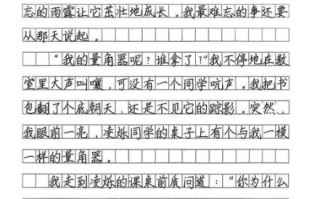 忘的雨露让它茁壮地成长。我最难忘的事还要
从那天说起。
“我的量角器呢？谁拿了？”我不停地在教
室里大声叫嚷，可没有一个同学吭声。我把书
包翻了个底朝天，还是不见它的踪影。突然，
我眼前一亮，凌烁同学的桌子上有个与我一模
一样的量角器。
我走到凌烁的课桌前质问道：“你为什么